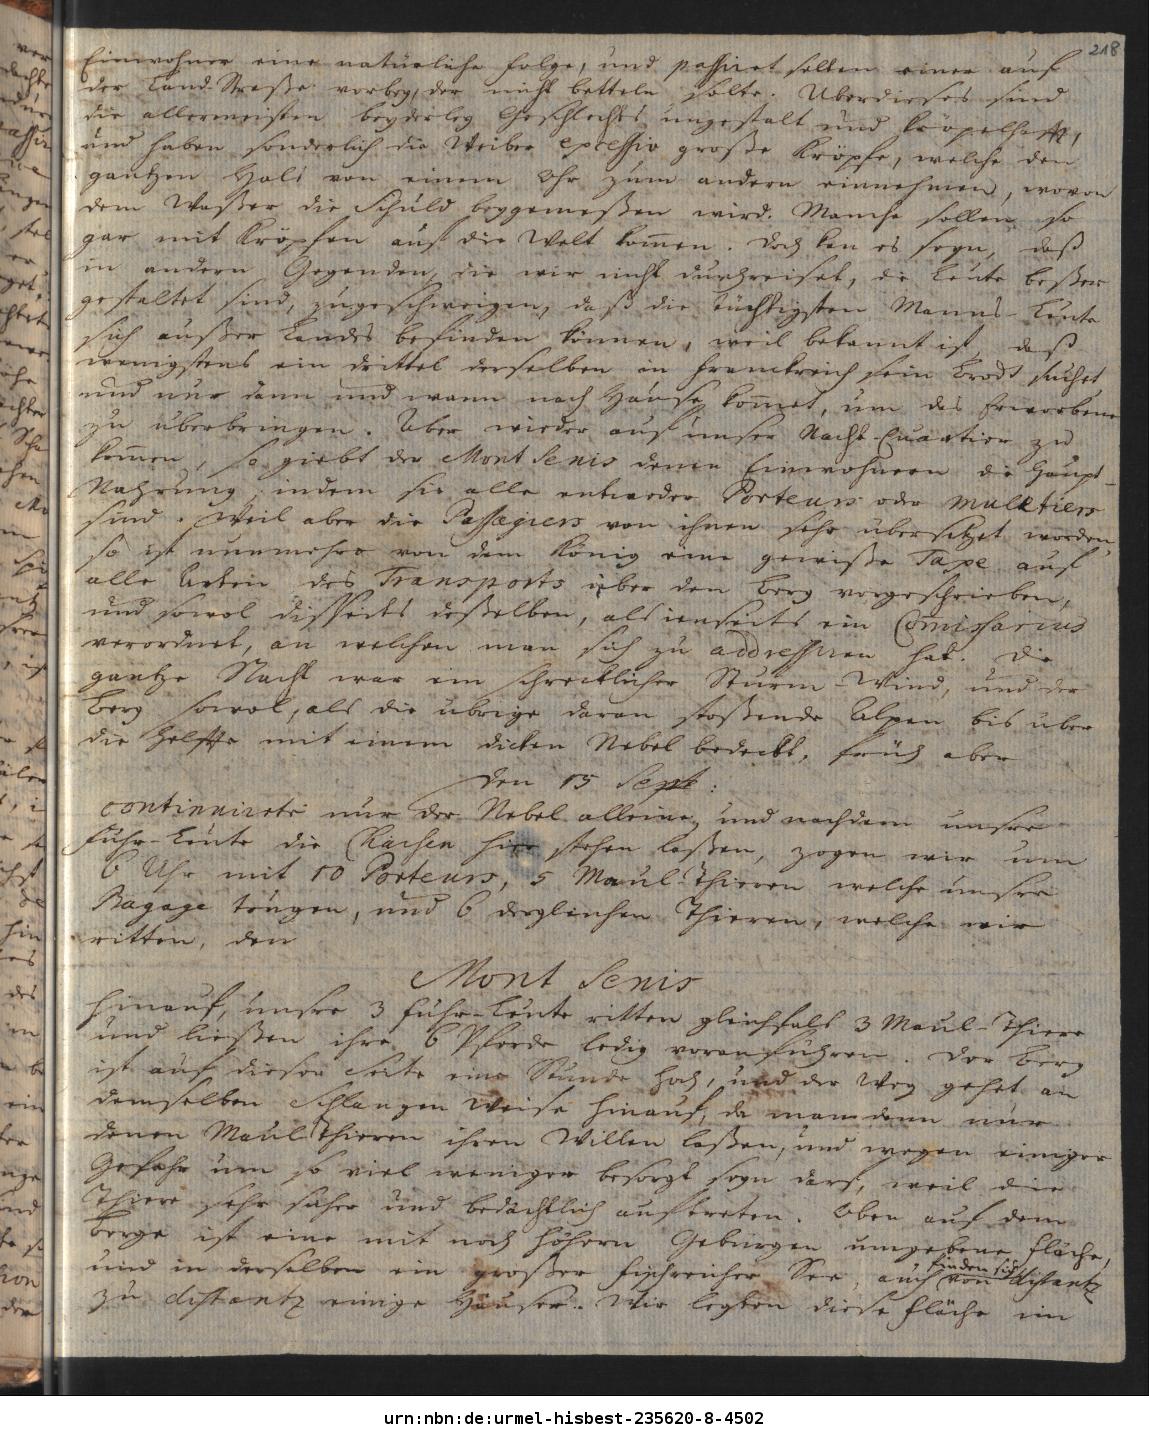 218
Einwohner eine natürliche Folge, und passiret selten einer auf
der Land-Straße vorbey, der nicht betteln solte. Uberdieses sind
die allermeisten beyderley Geschlechts ungestalt und kröpelhafft,
und haben sonderlich die Weiber excessiv große Kröpfe, welche den
gantzen Hals von einem Ohr zum andern einnehmen, wovon
dem Waßer die Schuld beygemeßen wird. Manche sollen so
gar mit Kröpfen auf die Welt kom̅en. Doch kan es seyn, daß
in andern Gegenden, die wir nicht durchreiset, die Leute beßer
gestaltet sind, zugeschweigen, daß die tüchtigsten Manns-Leute
sich außer Landes befinden können, weil bekannt ist, daß
wenigstens ein drittel derselben in Franckreich sein Brodt suchet
und nur dann und wann nach Hause kom̅et, um das Erworbene
zu überbringen. Aber wieder auf unser Nacht-Quartier zu
kom̅en, so giebt der Mont Senis denen Einwohnern die Haupt-
Nahrung, indem sie alle entweder Porteurs oder Muletiers
sind. Weil aber die Passagiers von ihnen sehr übersetzet worden,
so ist nunmehro von dem König eine gewiße Taxe auf
alle Arten des Transports über den Berg vorgeschrieben,
und sowol disseits deßelben, als ienseits ein Com̅issarius
verordnet, an welchen man sich zu addressiren hat. Die
gantze Nacht war ein schrecklicher Sturm-Wind, und der
Berg sowol, als die übrige daran stoßende Alpen bis über
die Helffte mit einem dicken Nebel bedeckt, früh aber
den 15 Sept:
continuirete nur der Nebel alleine, und nachdem unsre
Fuhr-Leute die Chaisen hier stehen laßen, zogen wir um
6 Uhr mit 10 Porteurs, 5 Maul-Thieren welche unsre
Bagage trugen, und 6 dergleichen Thieren, welche wir
ritten, den
Mont Senis
hinauf, unsre 3 Fuhr-Leute ritten gleichfalls 3 Maul-Thiere
und ließen ihre 6 Pferde ledig voranführen. Der Berg
ist auf dieser Seite eine Stunde hoch, und der Weg gehet an
demselben Schlangen Weise hinauf, da man denn nur
denen Maul-Thieren ihren Willen laßen, und wegen einiger
Gefahr um so viel weniger besorgt seyn darf, weil die
Thiere sehr sicher und bedächtlich auftreten. Oben auf dem
Berge ist eine mit noch höhern Gebürgen umgebene Fläche,
und in derselben ein großer fischreicher See, auch finden sich von distantz
zu distantz einige Häuser. Wir legten diese Fläche im
urn:nbn:de:urmel-hisbest-235620-8-4502